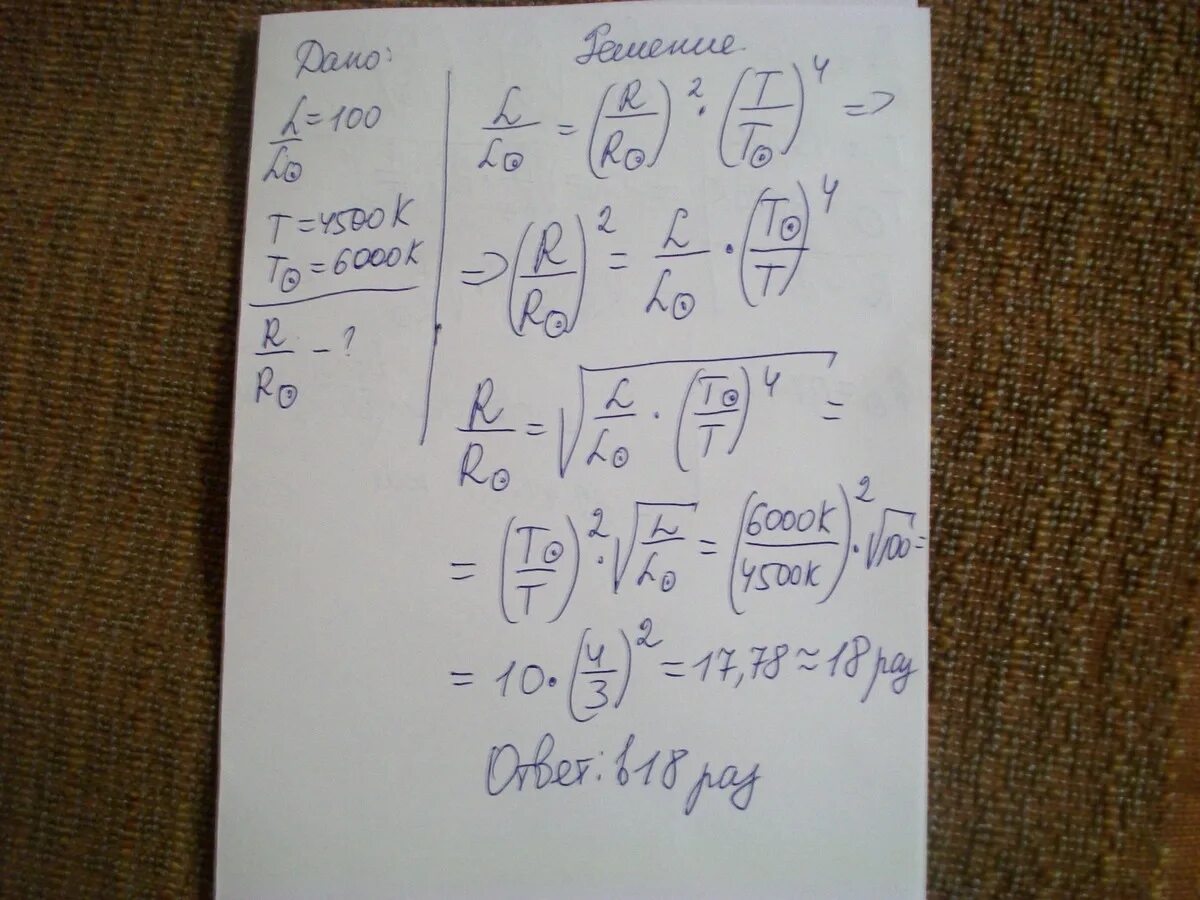 Дано:
L/L☉ = 100
T = 4500K
T☉ = 6000K
R/R☉ - ?
Решение
L/L☉ = (R/R☉)² · (T/T☉)⁴ =>
=> (R/R☉)² = L/L☉ · (T☉/T)⁴
R/R☉ = √(L/L☉ · (T☉/T)⁴) =
= (T☉/T)² · √(L/L☉) = (6000K/4500K)² · √100 =
= 10 · (4/3)² = 17,78 ≈ 18 раз
Ответ: в 18 раз